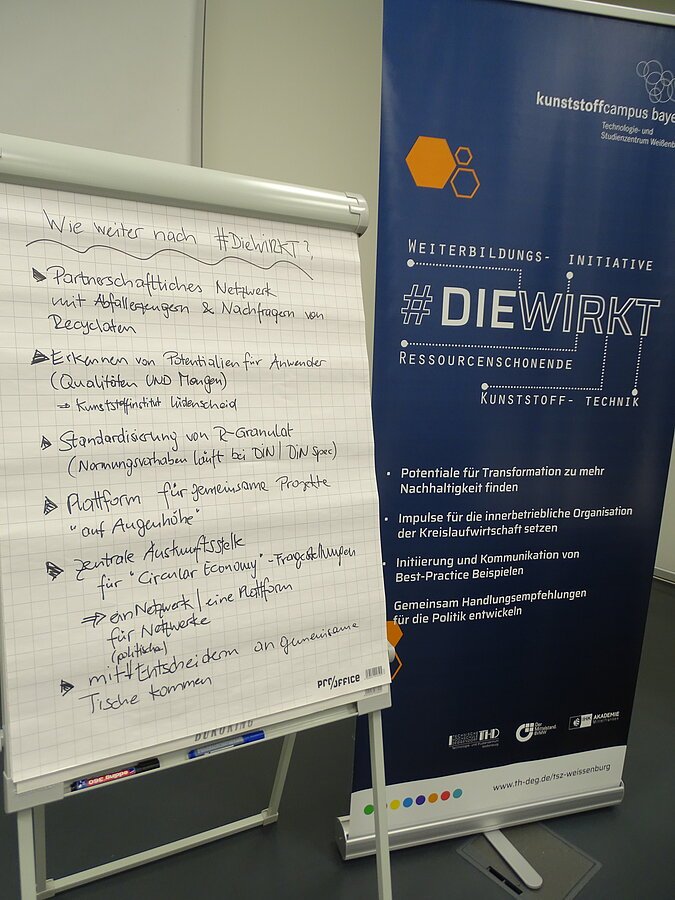 Wie weiter nach #DieWIRKT?
Partnerschaftliches Netzwerk
mit Abfallerzeugern & Nachfragern von
Recyclaten
Erkennen von Potentialien für Anwender
(Qualitäten UND Mengen)
⇒ Kunststoffinstitut Lüdenscheid
Standardisierung von R-Granulat
(Normungsvorhaben läuft bei DIN / DIN Spec)
Plattform für gemeinsame Projekte
"auf Augenhöhe"
zentrale Auskunftsstelle
für "Circular Economy"-Fragestellungen
⇒ ein Netzwerk / eine Plattform
für Netzwerke
(politische)
mit Entscheidern an gemeinsame
Tische kommen
PRO/OFFICE
edding 360
kunststoffcampus baye
Technologie- und
Studienzentrum Weißenb
WEITERBILDUNGS- INITIATIVE
#DIEWIRKT
RESSOURCENSCHONENDE
KUNSTSTOFF- TECHNIK
• Potentiale für Transformation zu mehr
Nachhaltigkeit finden
• Impulse für die innerbetriebliche Organisation
der Kreislaufwirtschaft setzen
• Initiierung und Kommunikation von
Best-Practice Beispielen
Gemeinsam Handlungsempfehlungen
für die Politik entwickeln
THD
Der
Mittelstand.
BVMW
IHK AKADEMIE
www.th-deg.de/tsz-weissenburg